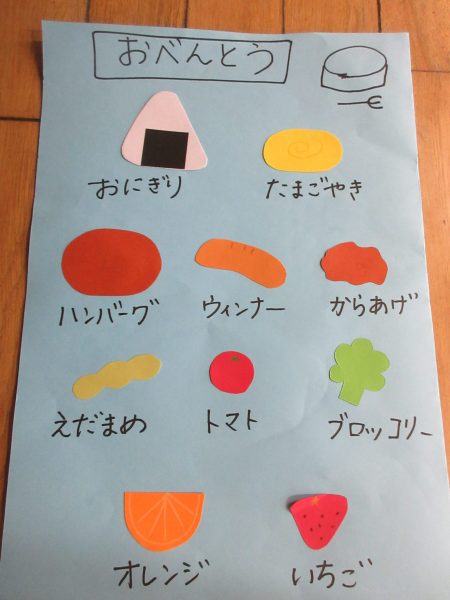 おべんとう
おにぎり たまごやき
ハンバーグ ウィンナー からあげ
えだまめ トマト ブロッコリー
オレンジ いちご